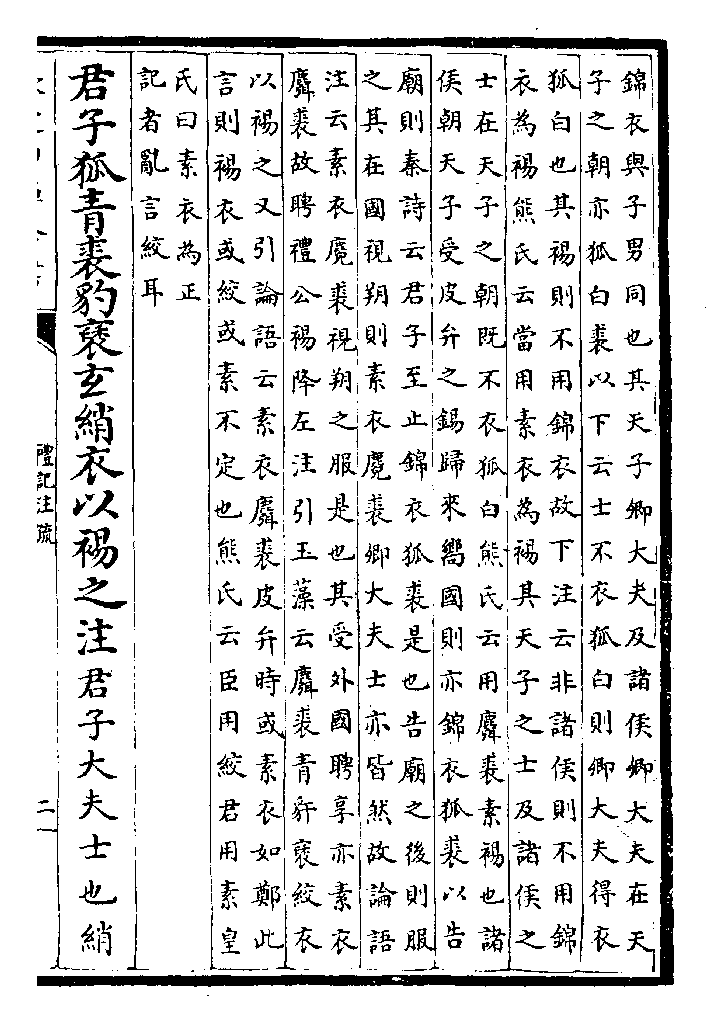 錦衣與子男同也其天子卿大夫及諸侯卿大夫在天
子之朝亦狐白裘以下云士不衣狐白則卿大夫得衣
狐白也其裼則不用錦衣故下注云非諸侯則不用錦
衣為裼熊氏云當用素衣為裼其天子之士及諸侯之
士在天子之朝既不衣狐白熊氏云用麛裘素裼也諸
侯朝天子受皮弁之錫歸來嚮國則亦錦衣狐裘以告
廟則秦詩云君子至止錦衣狐裘是也告廟之後則服
之其在國視朔則素衣麑裘卿大夫士亦皆然故論語
注云素衣麑裘視朔之服是也其受外國聘享亦素衣
麛裘故聘禮公裼降左注引玉藻云麛裘青豻褎絞衣
以裼之又引論語云素衣麛裘皮弁時或素衣如鄭此
言則裼衣或絞或素不定也熊氏云臣用絞君用素皇
氏曰素衣為正
記者亂言絞耳
君子狐青裘豹褎玄綃衣以裼之注君子大夫士也綃
禮記注疏
二一